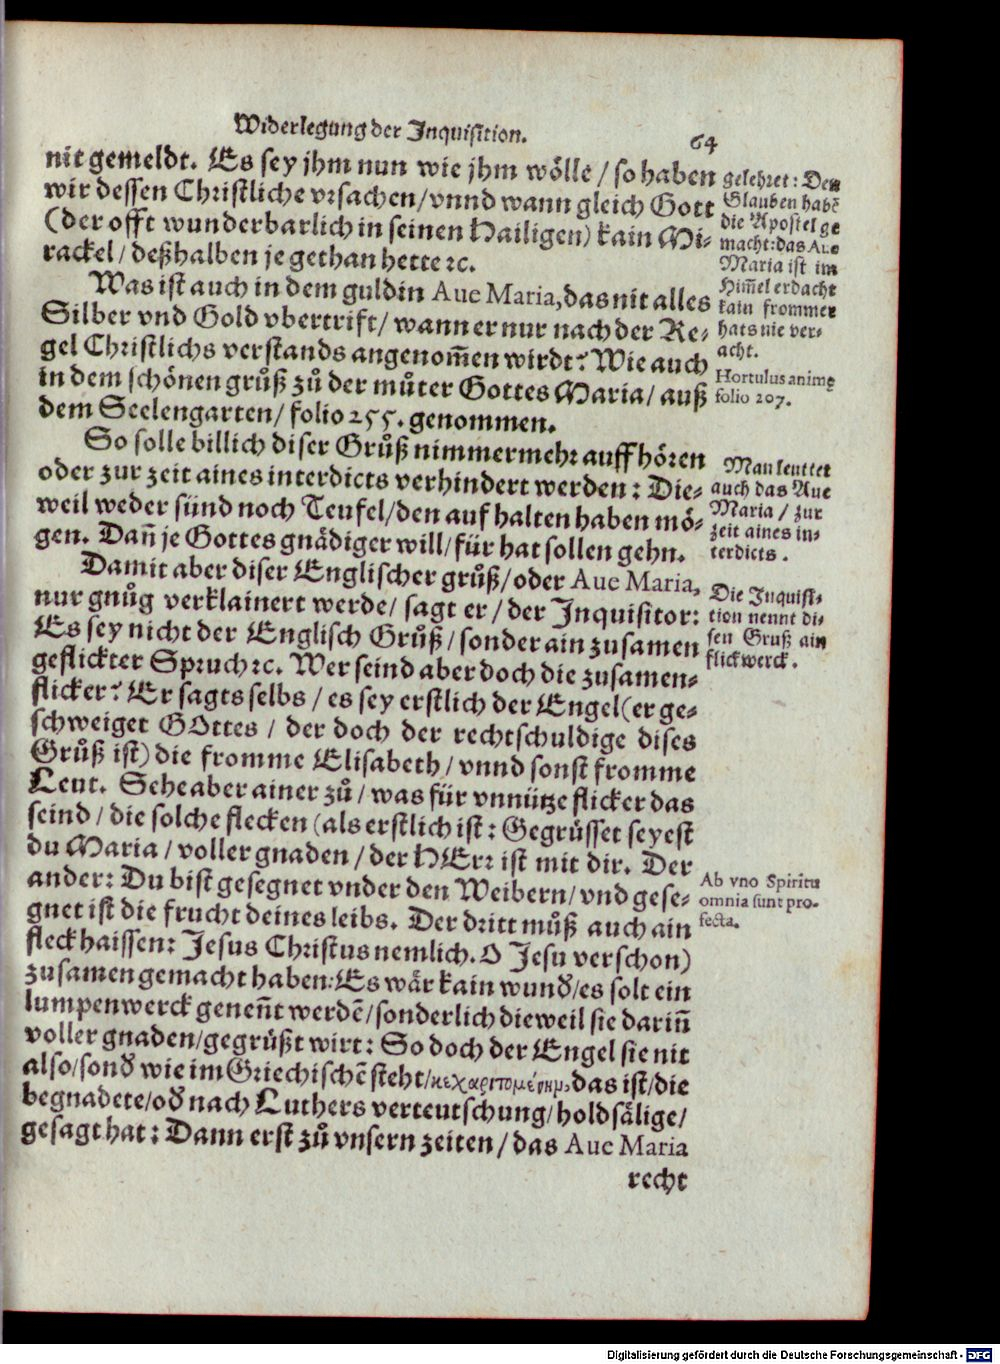 Widerlegung der Inquisition.
64
nit gemeldt. Es sey jhm nun wie jhm wölle / so haben
wir dessen Christliche vrsachen / vnnd wann gleich Gott
(der offt wunderbarlich in seinen Hailigen) kain Mi⸗
rackel / deßhalben je gethan hette ꝛc.
Was ist auch in dem guldin Aue Maria, das nit alles
Silber vnd Gold vbertrift / wann er nur nach der Re⸗
gel Christlichs verstands angenom̃en wirdt? Wie auch
in dem schönen grůß zů der můter Gottes Maria / auß
dem Seelengarten / folio 255. genommen.
So solle billich diser Grůß nimmermehr auffhören
oder zur zeit aines interdicts verhindert werden: Die⸗
weil weder sünd noch Teufel / den aufhalten haben mö⸗
gen. Dañ je Gottes gnädiger will / für hat sollen gehn.
Damit aber diser Englischer grůß / oder Aue Maria,
nur gnůg verklainert werde / sagt er / der Inquisitor:
Es sey nicht der Englisch Grůß / sonder ain zusamen
geflickter Spruch ꝛc. Wer seind aber doch die zusamen⸗
flicker? Er sagts selbs / es sey erstlich der Engel (er ge⸗
schweiget GOttes / der doch der rechtschuldige dises
Grůß ist) die fromme Elisabeth / vnnd sonst fromme
Leut. Sehe aber ainer zů / was für vnnütze flicker das
seind / die solche flecken (als erstlich ist: Gegrüsset seyest
du Maria / voller gnaden / der HErr ist mit dir. Der
ander: Du bist gesegnet vnder den Weibern / vnd gese⸗
gnet ist die frucht deines leibs. Der dritt můß auch ain
fleck haissen: Jesus Christus nemlich. O Jesu verschon)
zusamen gemacht haben: Es wär kain wund̕ / es solt ein
lumpenwerck geneñt werdẽ / sonderlich dieweil sie dariñ
voller gnaden / gegrüßt wirt: So doch der Engel sie nit
also / sond̕ wie im Griechischẽ steht / κεχαριτομένημ, das ist / die
begnadete / od̕ nach Luthers verteutschung / holdsälige /
gesagt hat: Dann erst zů vnsern zeiten / das Aue Maria
recht
gelehret: Den
Glauben habẽ
die Apostel ge
macht: das Aue
Maria ist im
Him̃el erdacht
kain frommer
hats nie ver⸗
acht.
Hortulus animę
folio 207.
Man leuttet
auch das Aue
Maria / zur
zeit aines in⸗
terdicts.
Die Inquisi⸗
tion nennt di⸗
sen Gruß ain
flickwerck.
Ab vno Spiritu
omnia sunt pro-
fecta.
Digitalisierung gefördert durch die Deutsche Forschungsgemeinschaft - DFG